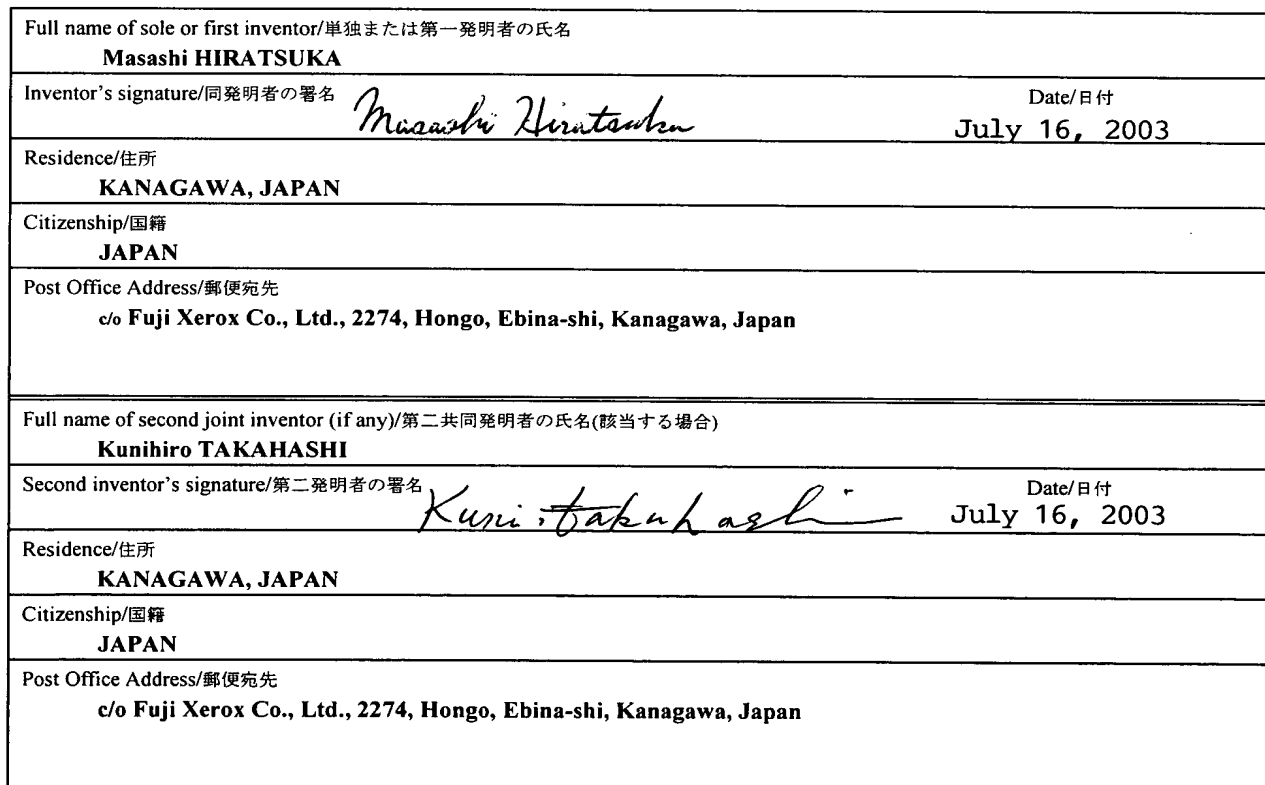 Full name of sole or first inventor/単独または第一発明者の氏名
Masashi HIRATSUKA
Inventor's signature/同発明者の署名 Masashi Hiratsuka Date/日付
July 16, 2003
Residence/住所
KANAGAWA, JAPAN
Citizenship/国籍
JAPAN
Post Office Address/郵便宛先
c/o Fuji Xerox Co., Ltd., 2274, Hongo, Ebina-shi, Kanagawa, Japan
Full name of second joint inventor (if any)/第二共同発明者の氏名(該当する場合)
Kunihiro TAKAHASHI
Second inventor's signature/第二発明者の署名 Kuni takahashi Date/日付
July 16, 2003
Residence/住所
KANAGAWA, JAPAN
Citizenship/国籍
JAPAN
Post Office Address/郵便宛先
c/o Fuji Xerox Co., Ltd., 2274, Hongo, Ebina-shi, Kanagawa, Japan